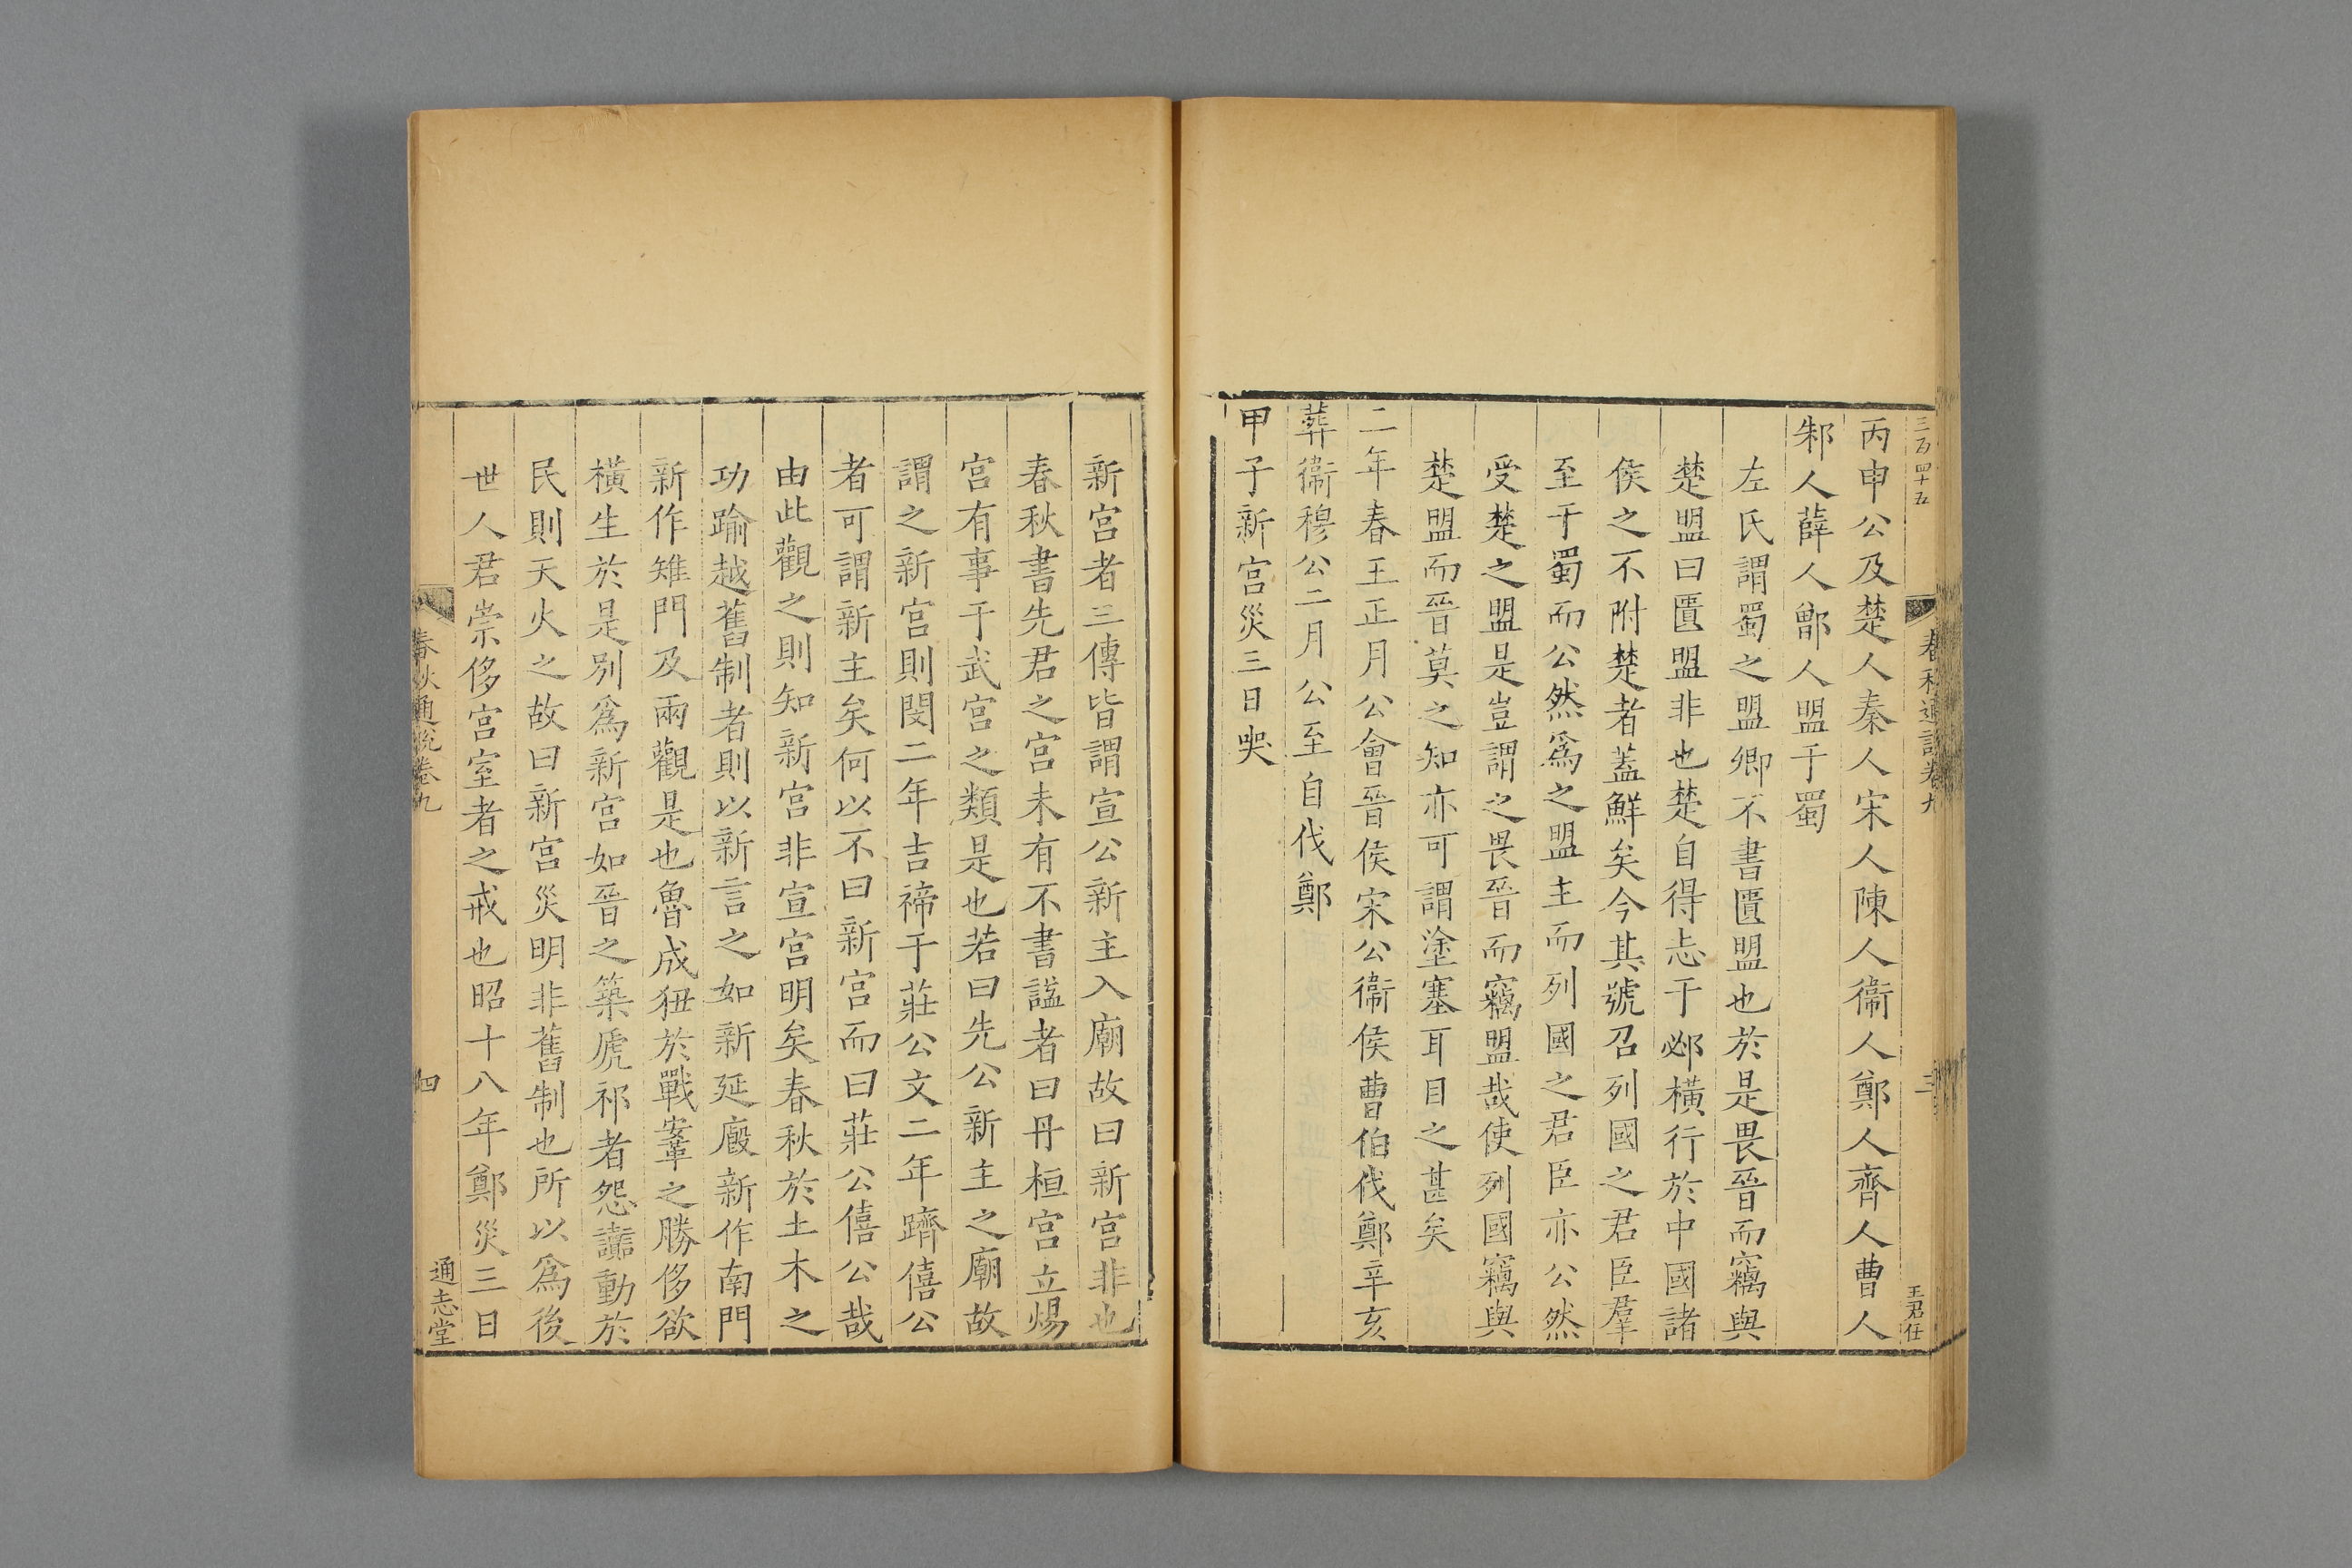 三百四十五
春秋通說卷九
三
王君任
丙申公及楚人秦人宋人陳人衞人鄭人齊人曹人
邾人薛人鄫人盟于蜀
左氏謂蜀之盟卿不書匱盟也於是畏晉而竊與
楚盟曰匱盟非也楚自得志于邲橫行於中國諸
侯之不附楚者蓋鮮矣今其號召列國之君臣羣
至于蜀而公然爲之盟主而列國之君臣亦公然
受楚之盟是豈謂之畏晉而竊盟哉使列國竊與
楚盟而晉莫之知亦可謂塗塞耳目之甚矣
二年春王正月公會晉侯宋公衞侯曹伯伐鄭辛亥
葬衞穆公二月公至自伐鄭
甲子新宮災三日哭
新宮者三傳皆謂宣公新主入廟故曰新宮非也
春秋書先君之宮未有不書諡者曰丹桓宮立煬
宮有事于武宮之類是也若曰先公新主之廟故
謂之新宮則閔二年吉禘于莊公文二年躋僖公
者可謂新主矣何以不曰新宮而曰莊公僖公哉
由此觀之則知新宮非宣宮明矣春秋於土木之
功踰越舊制者則以新言之如新延廏新作南門
新作雉門及兩觀是也魯成狃於戰鞌之勝侈欲
橫生於是別爲新宮如晉之築虒祁者怨讟動於
民則天火之故曰新宮災明非舊制也所以爲後
世人君崇侈宮室者之戒也昭十八年鄭災三日
春秋通說卷九
四
通志堂